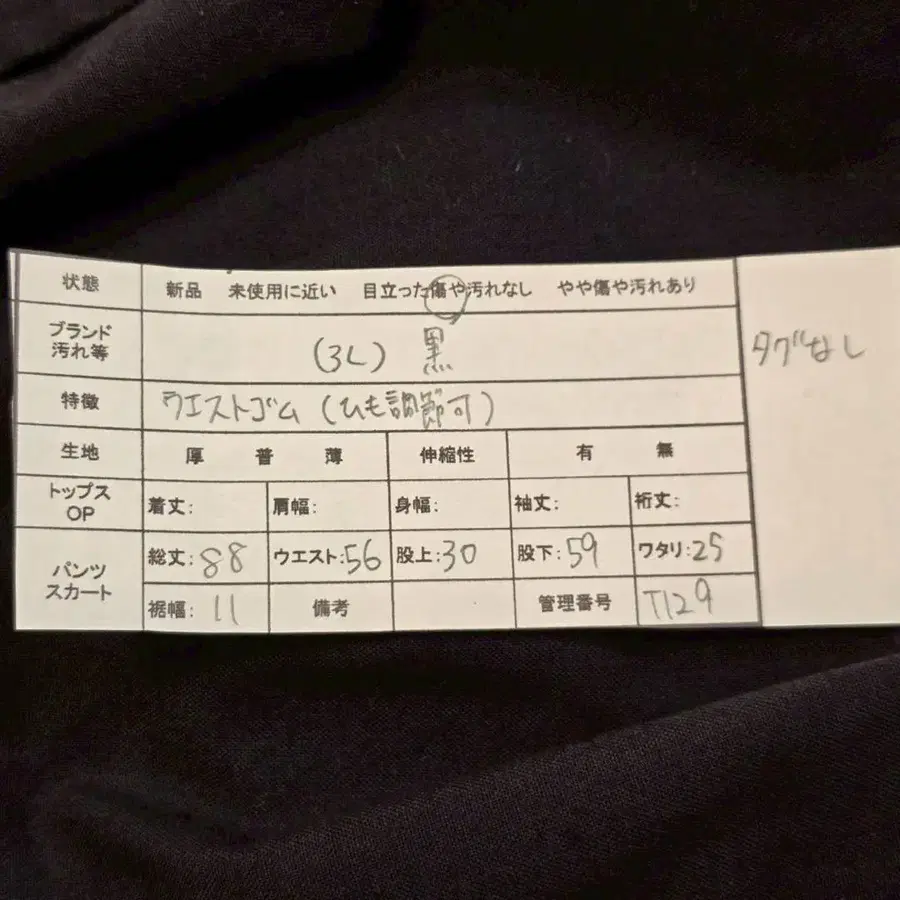 状態 新品 未使用に近い 目立った傷や汚れなし やや傷や汚れあり
ブランド
汚れ等 (3L) 黒
タグなし
特徴 ウエストゴム(ひも調節可)
生地 厚 普 薄 伸縮性 有 無
トップス
OP 着丈: 肩幅: 身幅: 袖丈: 裄丈:
パンツ
スカート 総丈:88 ウエスト:56 股上:30 股下:59 ワタリ:25
裾幅:11 備考 管理番号 T129